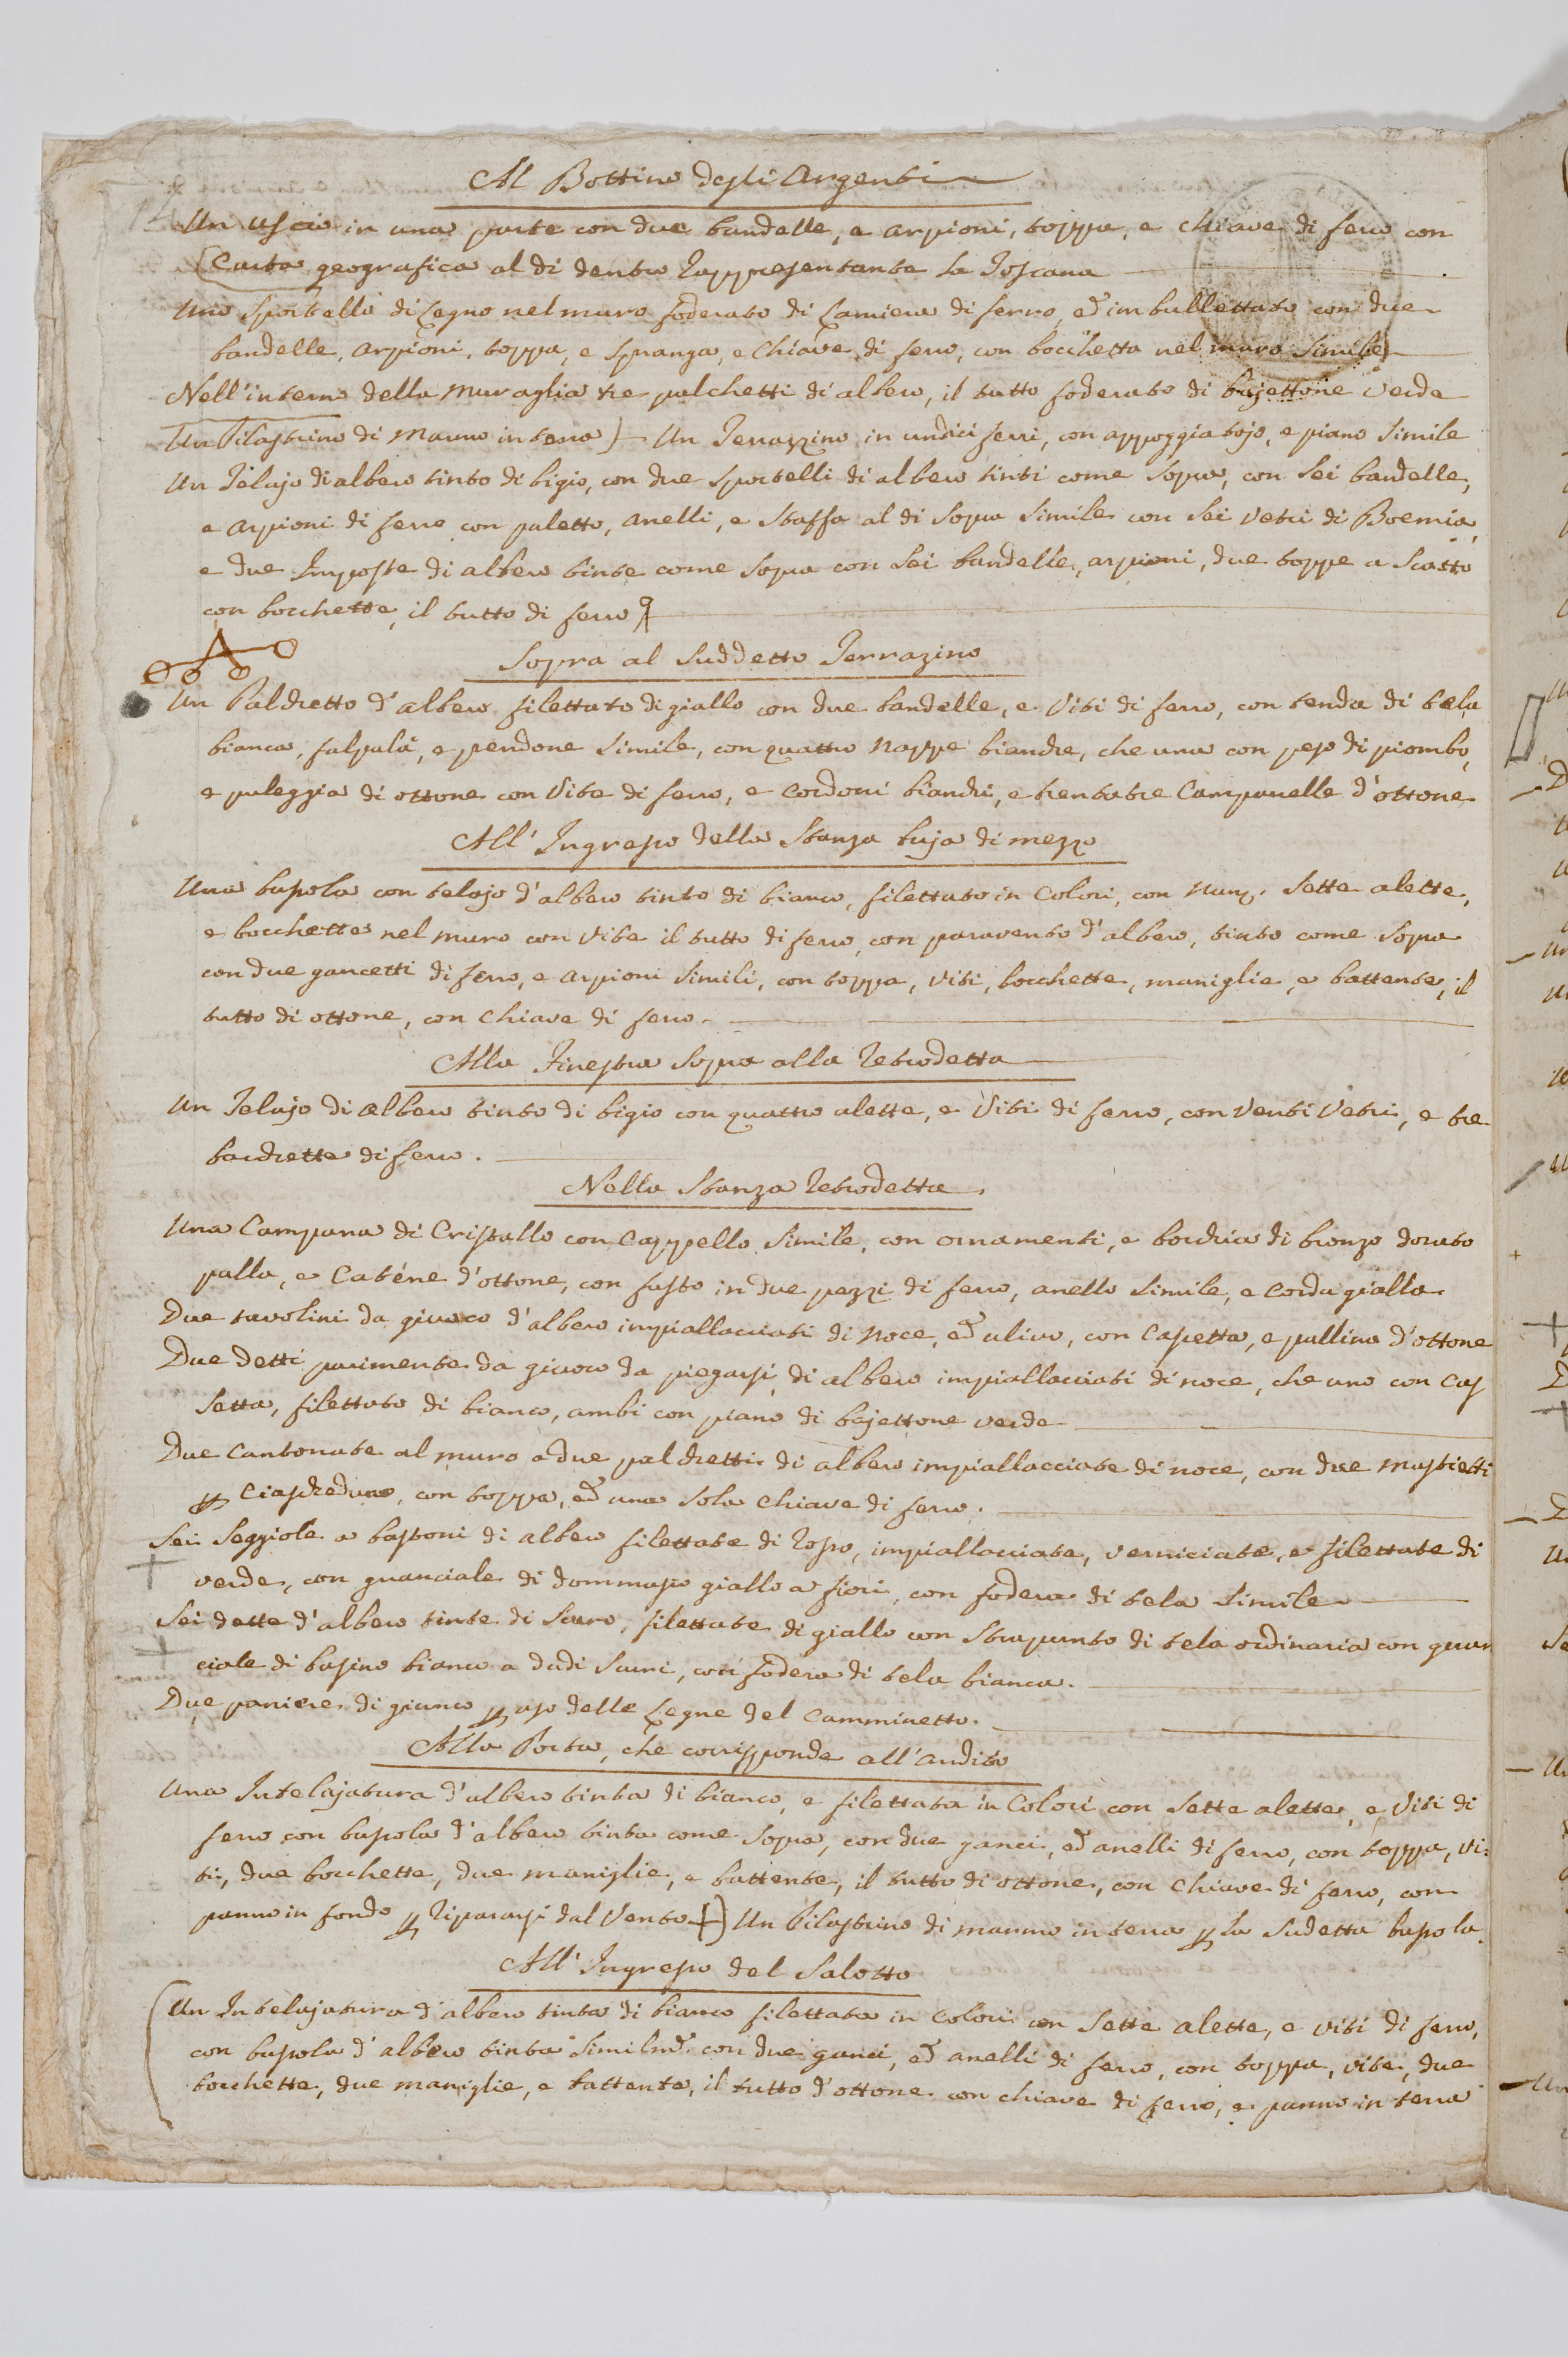 Al Bottino degli Argenti
Un uscio in una parte con due bandelle, e arpioni, toppa, e chiave di ferro con
Carta geografica al di dentro rappresentante la Toscana
Uno sportello di legno nel muro foderato di lamiera di ferro, ed imbullettato con due
bandelle, arpioni, toppa, e spranga, e chiave di ferro, con bocchetta nel muro simile
Nell'interno della muraglia tre palchetti di albero, il tutto foderato di bajettone verde
Un Pilastrino di marmo in terra) Un Terrazzino in undici ferri, con appoggiatojo, e piano simile
Un Telajo di albero tinto di bigio, con due sportelli di albero tinti come sopra, con sei bandelle,
e arpioni di ferro con paletto, anelli, e staffa al di sopra simile con sei vetri di Boemia,
e due Imposte di albero tinte come sopra con sei bandelle, arpioni, due toppe a scatto
con bocchette, il tutto di ferro
Sopra al Suddetto Terrazino
Un Palchetto d'albero filettato di giallo con due bandelle, e viti di ferro, con tenda di tela
bianca, falpalà, e pendone simile, con quattro nappe bianche, che una con peso di piombo,
e puleggia di ottone con vite di ferro, e cordoni bianchi, e trentatre campanelle d'ottone
All' Ingresso della Stanza buja di mezzo
Una bussola con telajo d'albero tinto di bianco, filettato in colori, con num. sette alette,
e bocchette nel muro con vite il tutto di ferro, con paravento d'albero, tinto come sopra
con due gancetti di ferro, e arpioni simili, con toppa, viti, bocchette, maniglie, e battente, il
tutto di ottone, con chiave di ferro.
Alla Finestra sopra alla retrodetta
Un Telajo di albero tinto di bigio con quattro alette, e viti di ferro, con venti vetri, e tre
bacchette di ferro.
Nella Stanza retrodetta.
Una Campana di Cristallo con cappello simile, con ornamenti, e borchia di bronzo dorato
palla, e catene d'ottone, con fusto in due pezzi di ferro, anello simile, e corda gialla.
Due tavolini da giuoco d'albero impiallacciati di noce, ed ulivo, con casetta, e pallino d'ottone
Due detti parimente da giuoco da piegarsi di albero impiallacciati di noce, che uno con cas
setta, filettato di bianco, ambi con piano di bajettone verde
Due cantonate al muro a due palchetti di albero impiallacciate di noce, con due mastietti
p ciascheduna, con toppa, ed una sola chiave di ferro.
Sei seggiole a bastoni di albero filettate di rosso, impiallacciate, verniciate, e filettate di
verde, con guanciale di dommasco giallo a fiori, con fodera di tela simile
Sei dette d'albero tinte di scuro, filettate di giallo con strapunto di tela ordinaria con guan
ciale di basino bianco a dadi scuri, così fodera di tela bianca.
Due paniere di giunco p uso delle legne del camminetto.
Alla Porta, che corrisponde all'andito
Una Intelajatura d'albero tinta di bianco, e filettata in colori con sette alette, e viti di
ferro con bussola d'albero tinta come sopra, con due ganci, ed anelli di ferro, con toppa, vi:
ti, due bocchette, due maniglie, e battente, il tutto di ottone, con chiave di ferro, con
panno in fondo p ripararsi dal vento +) Un Pilastrino di marmo in terra p la sudetta bussola.
All' Ingresso del Salotto
Un Intelajatura d'albero tinta di bianco filettata in colori con sette alette, e viti di ferro,
con bussola d'albero tinta similm.e con due ganci, ed anelli di ferro, con toppa, vite, due
bocchette, due maniglie, e battente, il tutto d'ottone con chiave di ferro, e panno in terra